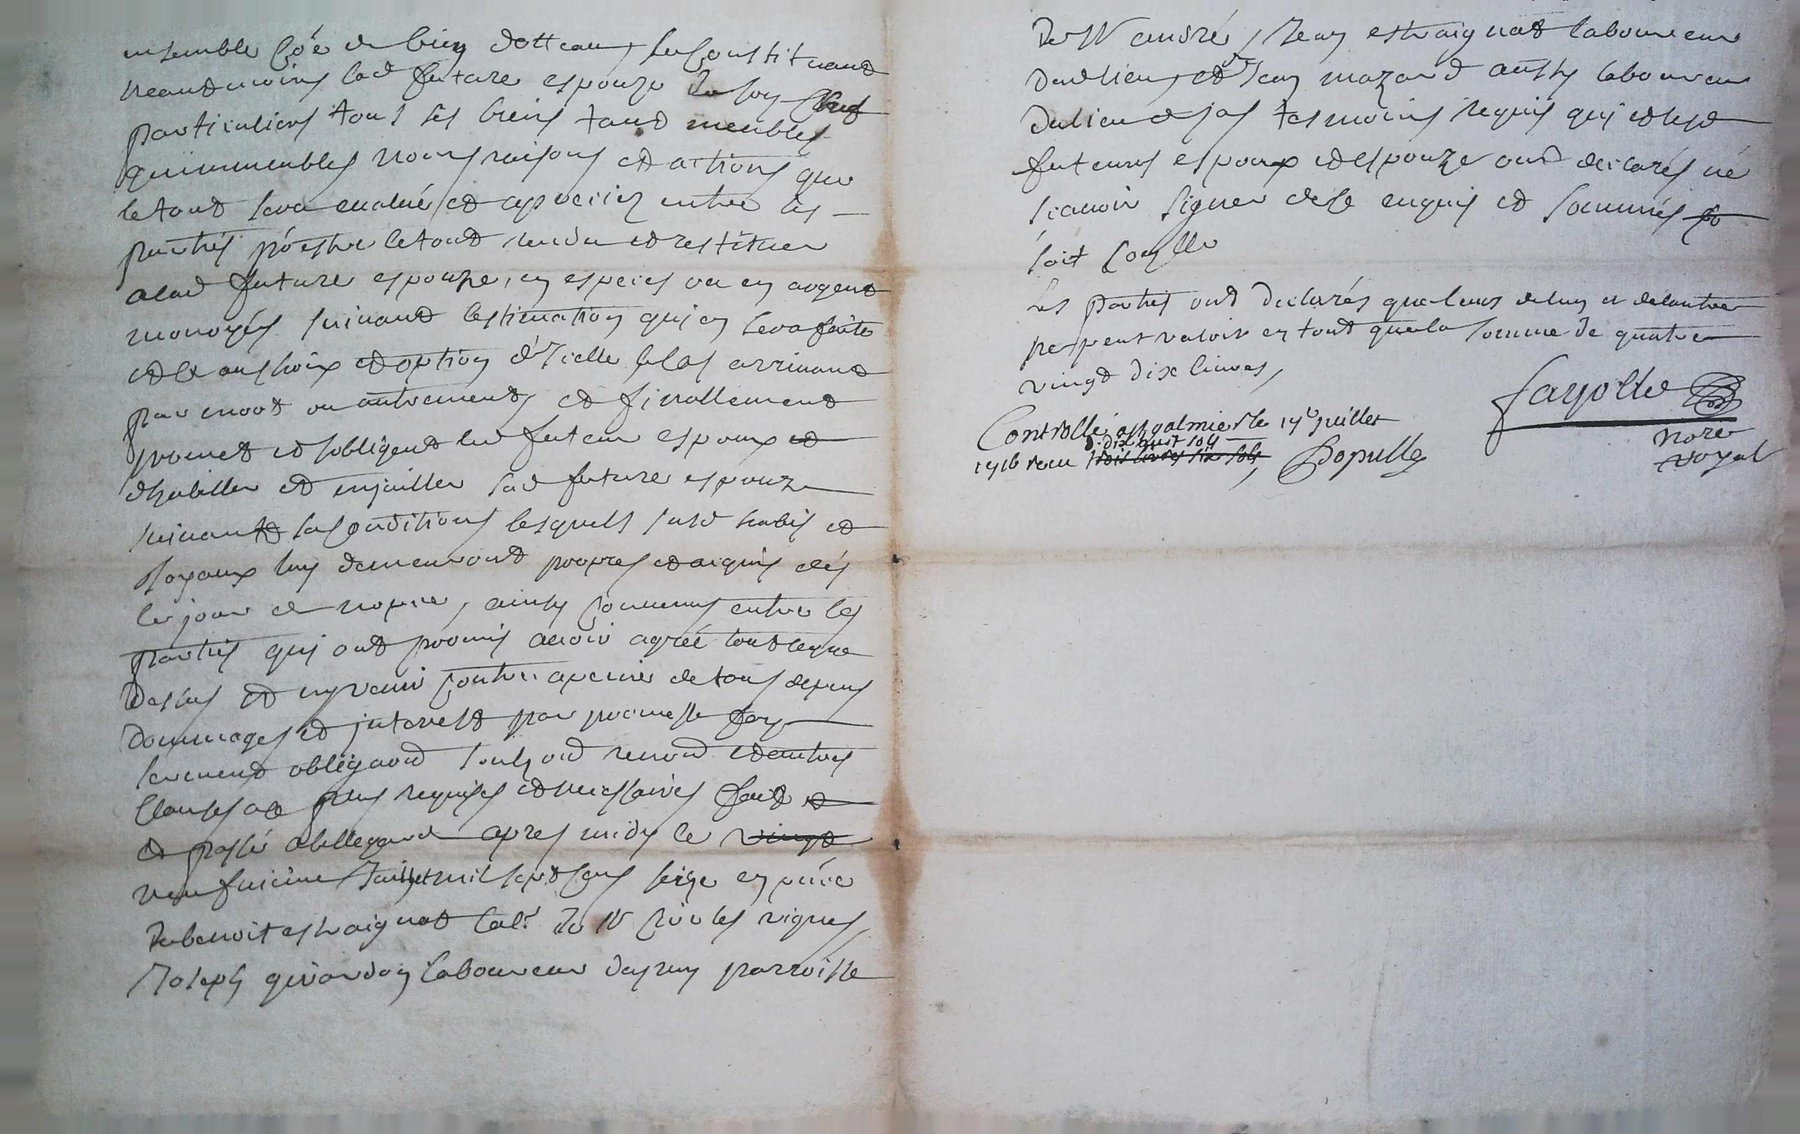 ensemble co͠e de bien dottaux, se constituant
neantmoins lad future espouze de son chef
particuliers tous ses biens tant meubles
qu'immeubles noms raisons et actions que
le tout sera evalué et apprecier entre les
parties p͠o estre le tout rendu et restituer
a lad future espouze, en especes ou en argent
monoyés suivant lestimation qui en sera faite
et le au choix et option d'Icelle le cas arrivant
par mort ou autrement, et finallement
promet et sobligent led futeur espoux et
d'habiller et enjoailler sad future espouze
suivant sa condition lesquels susd habis et
Joyaux luy demeuront propres et aiquis dés
le jour de nopce, ainsy convenus entre les
parties qui ont promis avoir agréé tout ce que
dessus et ny venir contre a peine de tous depens
dommages et interest par promesse foy
serment obligaon soubz on renon et autres
Clauses ad plus requises et necessaires fait et
et passé a bellegarde apres midy le vingt
neufuieme Juillet mil sept cens seize en p͠nce
de benoit estraignat lab.r de St Cir les vignes,
Joseph girardon laboureur dasnay parroisse
de St andré, Jean estraignat laboureur
dud lieu, et Jean mazard aussy laboureur
du lieu de jas tesmoins requis qui et lesd
futeurs espoux et espouze ont declarés né
scavoir signer de ce enquis et sommés
soit Conllé
Les parties ont declarés que leurs de luy et de lautre
ne peut valoir en tout que la somme de quatre
vingt dix livres,
Fayolle
no͠re
royal
Controllé a st galmier le 19e juillet
d. dix huit sols
1716 receu trois livres six sols, Dopulle